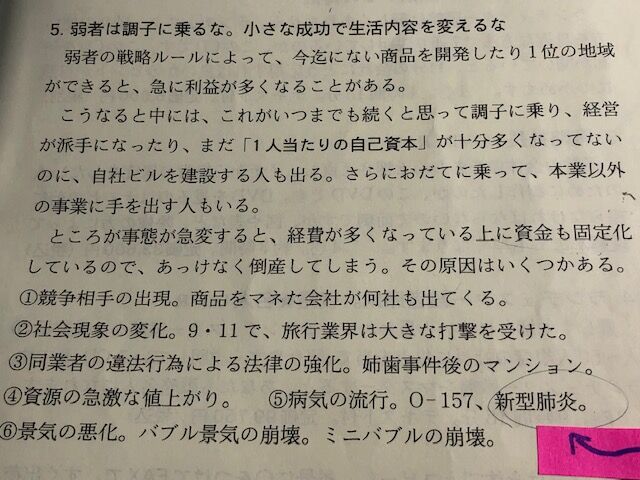 5. 弱者は調子に乗るな。小さな成功で生活内容を変えるな
弱者の戦略ルールによって、今迄にない商品を開発したり１位の地域
ができると、急に利益が多くなることがある。
こうなると中には、これがいつまでも続くと思って調子に乗り、経営
が派手になったり、まだ「１人当たりの自己資本」が十分多くなってない
のに、自社ビルを建設する人も出る。さらにおだてに乗って、本業以外
の事業に手を出す人もいる。
ところが事態が急変すると、経費が多くなっている上に資金も固定化
しているので、あっけなく倒産してしまう。その原因はいくつかある。
①競争相手の出現。商品をマネた会社が何社も出てくる。
②社会現象の変化。９・11で、旅行業界は大きな打撃を受けた。
③同業者の違法行為による法律の強化。姉歯事件後のマンション。
④資源の急激な値上がり。　⑤病気の流行。O-157、新型肺炎。
⑥景気の悪化。バブル景気の崩壊。ミニバブルの崩壊。